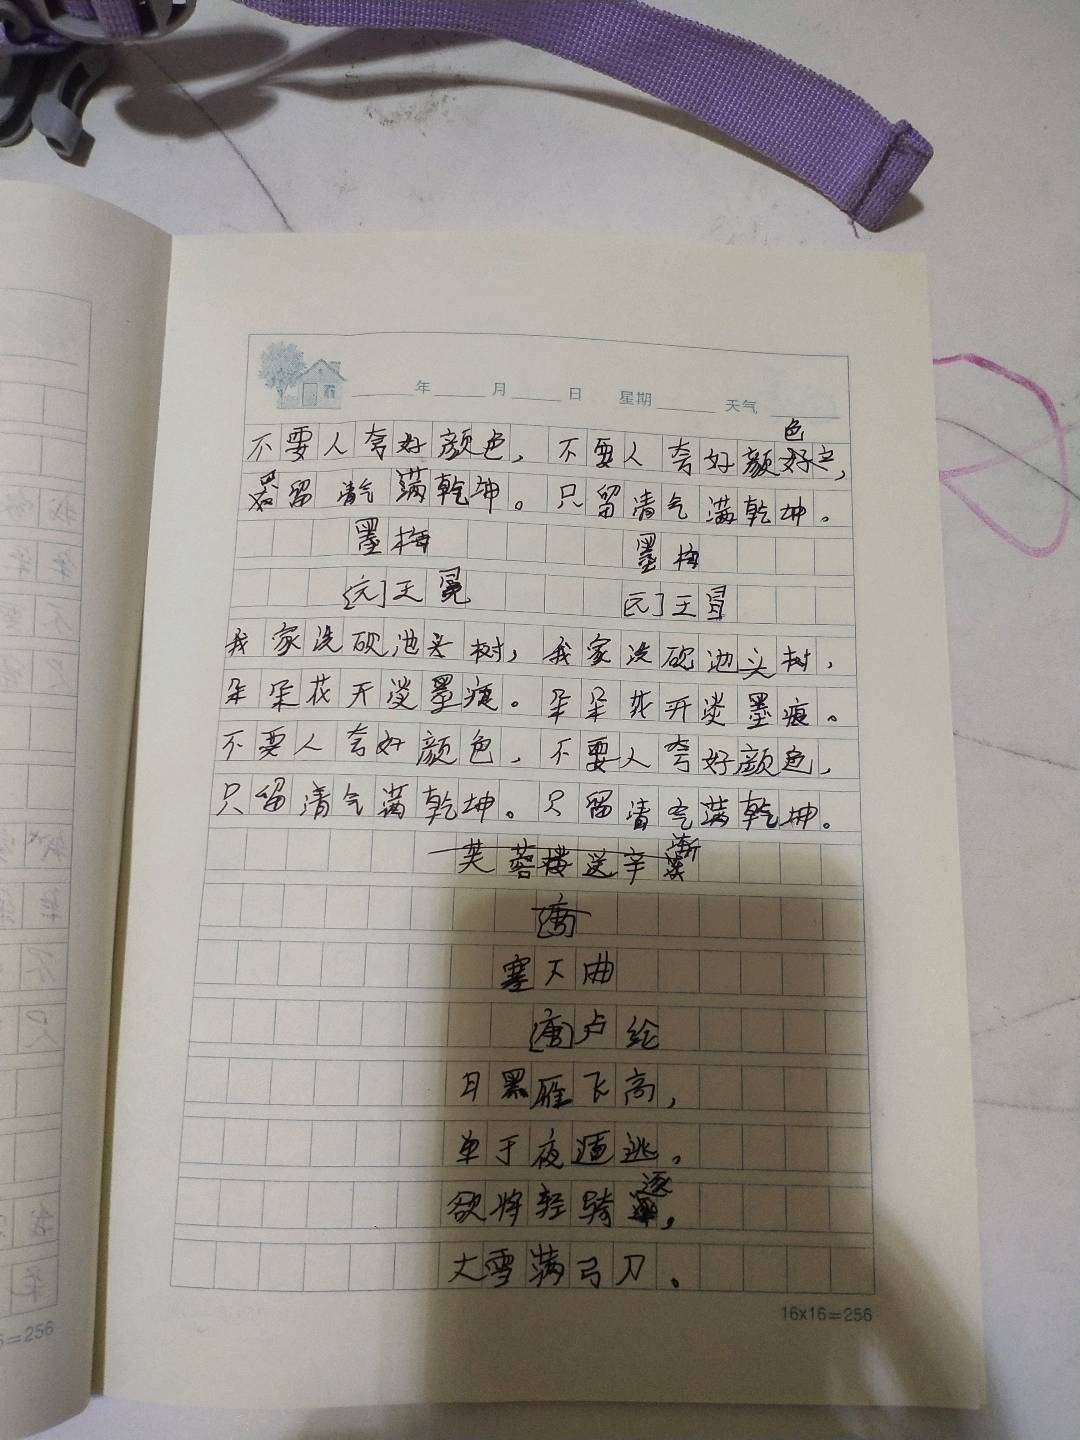 年 月 日 星期 天气
色
不要人夸好颜色，不要人夸好颜
只留清气满乾坤。只留清气满乾坤。
墨梅 墨梅
[元]王冕 [元]王冕
我家洗砚池头树，我家洗砚池头树，
朵朵花开淡墨痕。朵朵花开淡墨痕。
不要人夸好颜色，不要人夸好颜色，
只留清气满乾坤。只留清气满乾坤。
芙蓉楼送辛渐
[唐]
塞下曲
[唐]卢纶
月黑雁飞高，
单于夜遁逃。
逐
欲将轻骑，
大雪满弓刀。
16x16=256
6=256